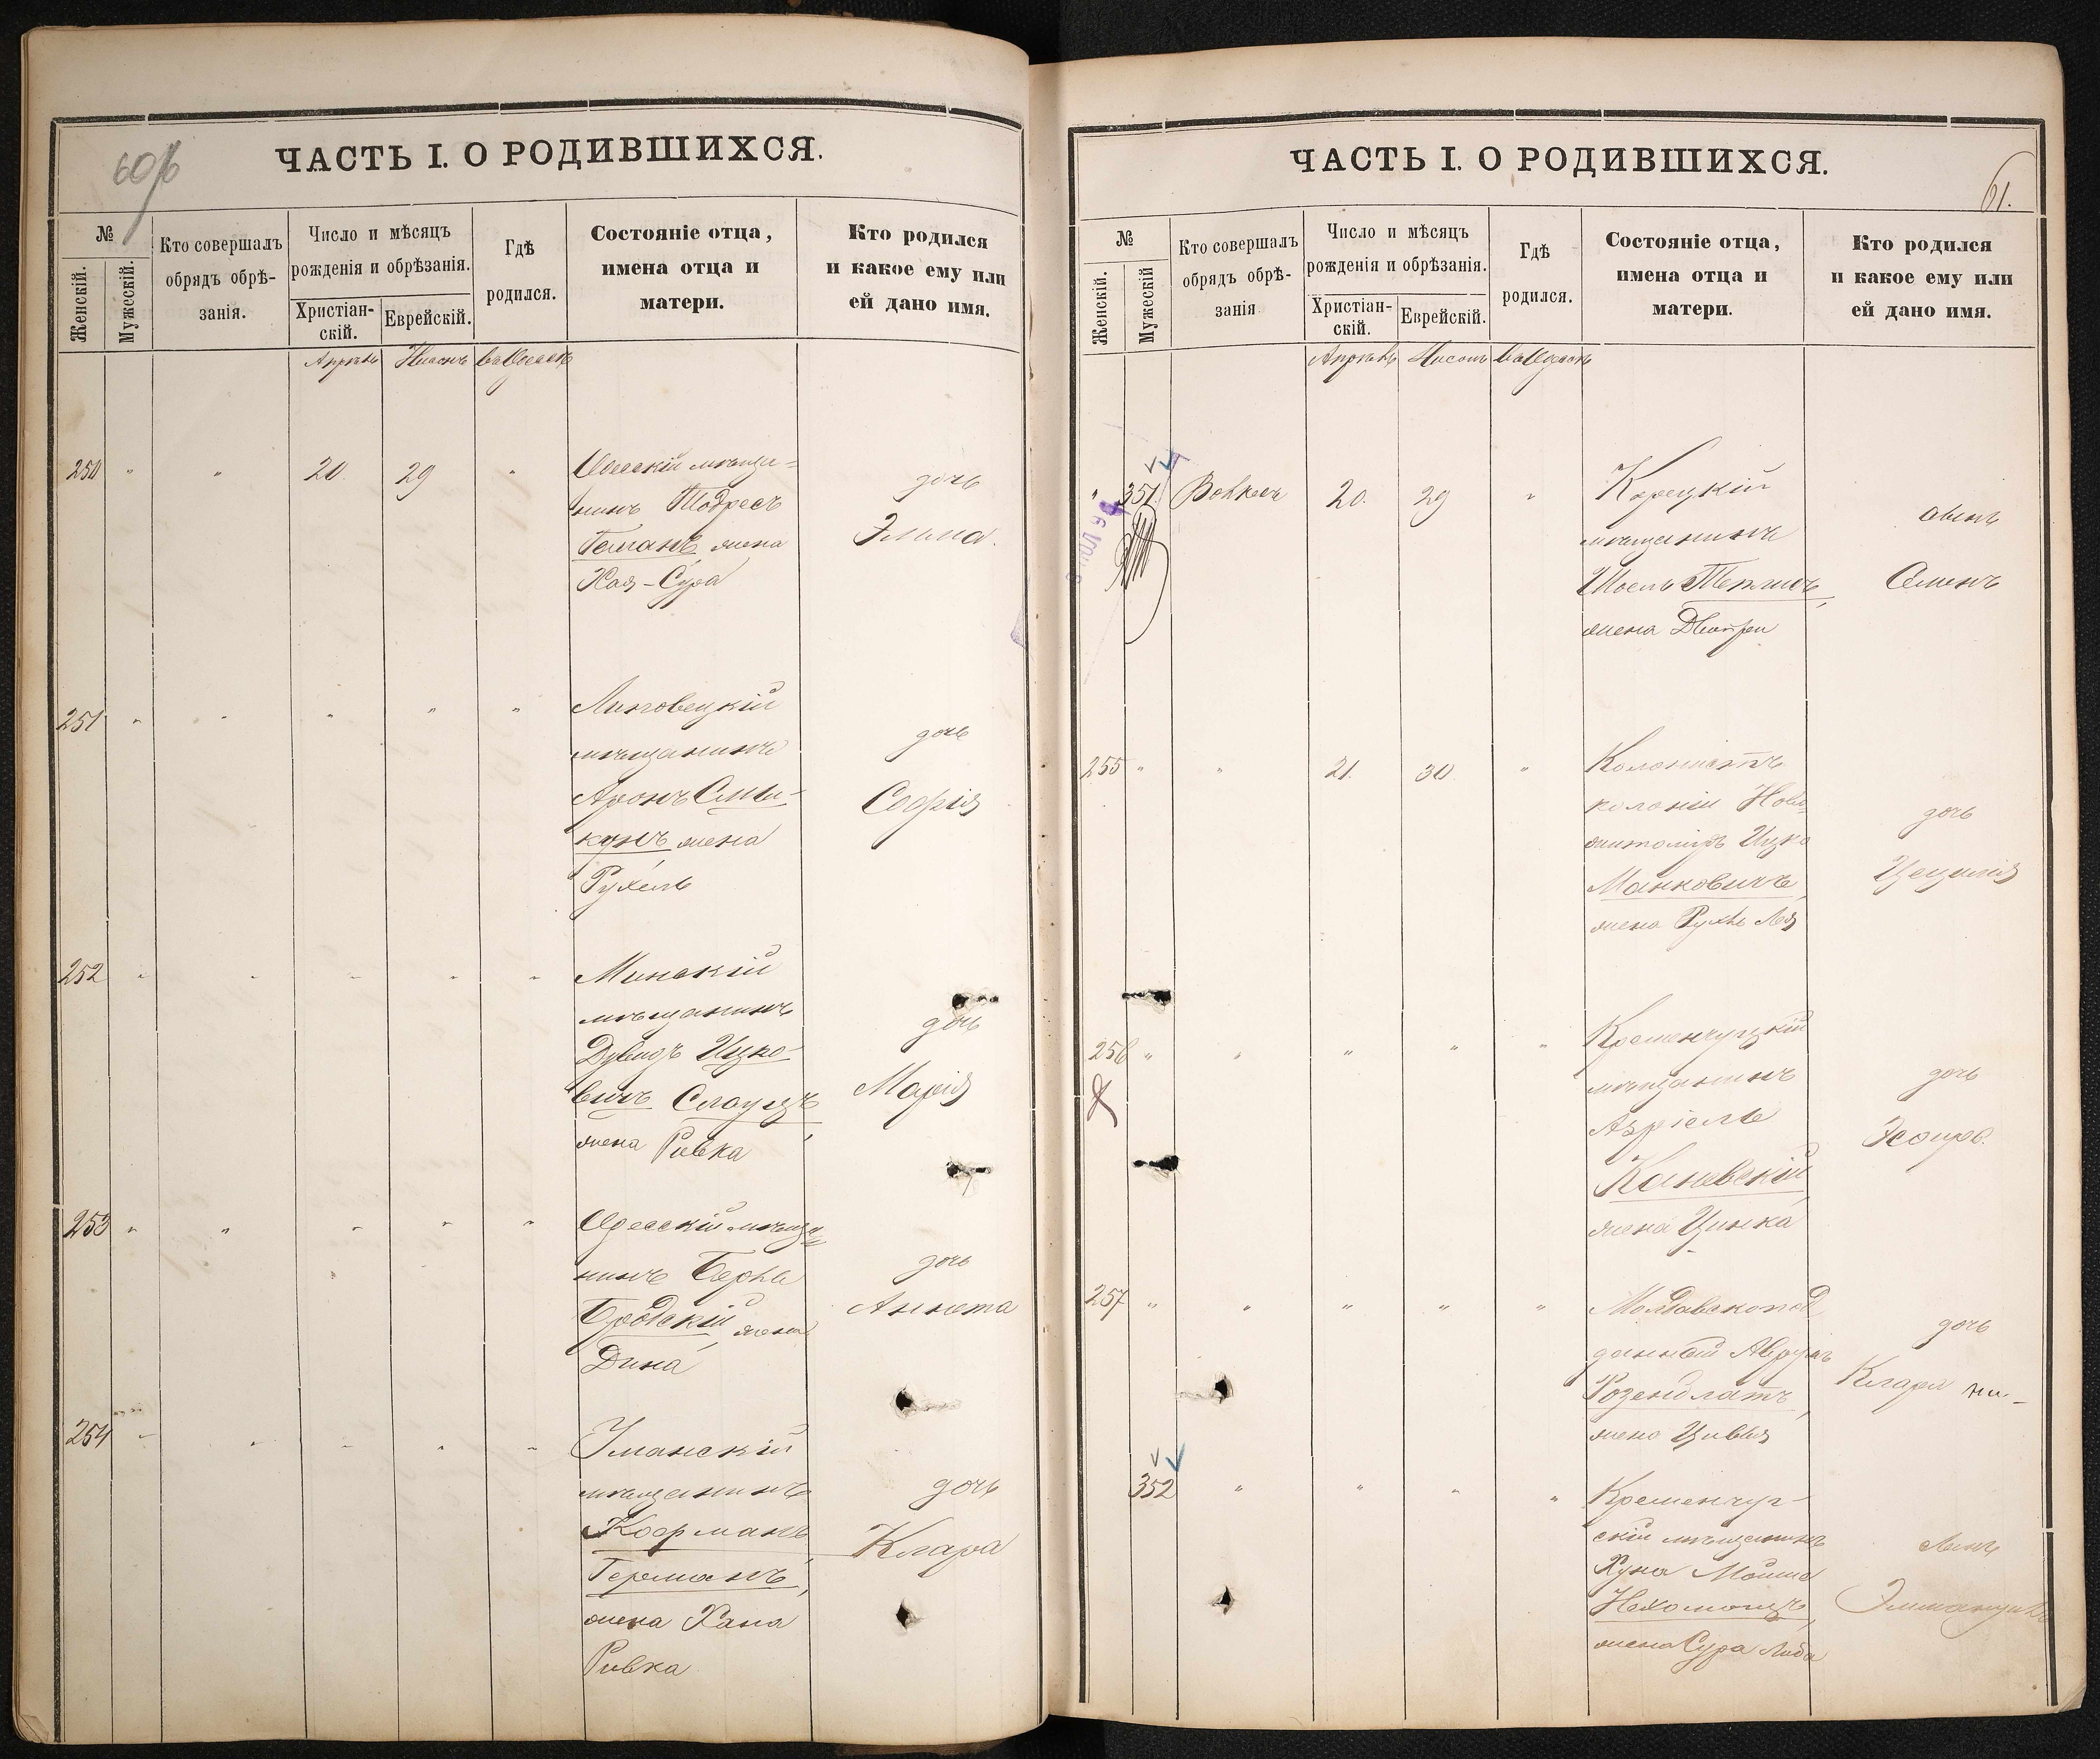 60/б
ЧАСТЬ I. О РОДИВШИХСЯ.
№
Женскій.
Мужескій.
Кто совершалъ
обрядъ обрѣ-
занія.
Число и мѣсяцъ
рожденія и обрѣзанія.
Христіан-
скій.
Еврейскій.
Гдѣ
родился.
Состояніе отца,
имена отца и
матери.
Кто родился
и какое ему или
ей дано имя.
Апрѣль Нисонъ въ Одессѣ
250 " " 20. 29 "
Одесскій мѣща-
нинъ Тодресъ
жена
Хая-Сура
дочь
251 " " " " "
Липовецкій
мѣщанинъ
Аронъ Спи-
кунъ жена
Рухель
дочь
Софія
252 " " " " "
Минскій
мѣщанинъ
Дувидъ Ицко-
вичъ
жена Ривка
дочь
Марія
253 " " " " "
Одесскій мѣща-
нинъ Беръ
Бродскій, жена
Дина
дочь
Аннета
254 " " " " "
Уманскій
мѣщанинъ
Кофманъ
Германъ,
жена Хана
Ривка
дочь
Клара
ЧАСТЬ I. О РОДИВШИХСЯ.
61.
№
Женскій.
Мужескій
Кто совершалъ
обрядъ обрѣ-
занія
Число и мѣсяцъ
рожденія и обрѣзанія.
Христіан-
скій.
Еврейскій.
Гдѣ
родился.
Состояніе отца,
имена отца и
матери.
Кто родился
и какое ему или
ей дано имя.
Апрѣль Нисонъ въ Одессѣ
" 351. 20. 29 "
Корецкій
мѣщанинъ
жена Двойра
сынъ
Семенъ
255 " " 21. 30 "
Колонистъ
колоніи Ново-
житоміръ Ицко
Манковичъ,
жена Рухль Лея
дочь
Цецилія
256 " " " " "
Кременчугскій
мѣщанинъ
Азріель
Каневскій,
жена Цинка
дочь
257 " " " " "
Молдавскопод
данный Аврумъ
Розенблатъ,
жена Цивья
дочь
Клара
352 " " " "
Кременчуг-
скій мѣщанинъ
Хуна Мойше
жена Сура Либа
сынъ
Эммануилъ